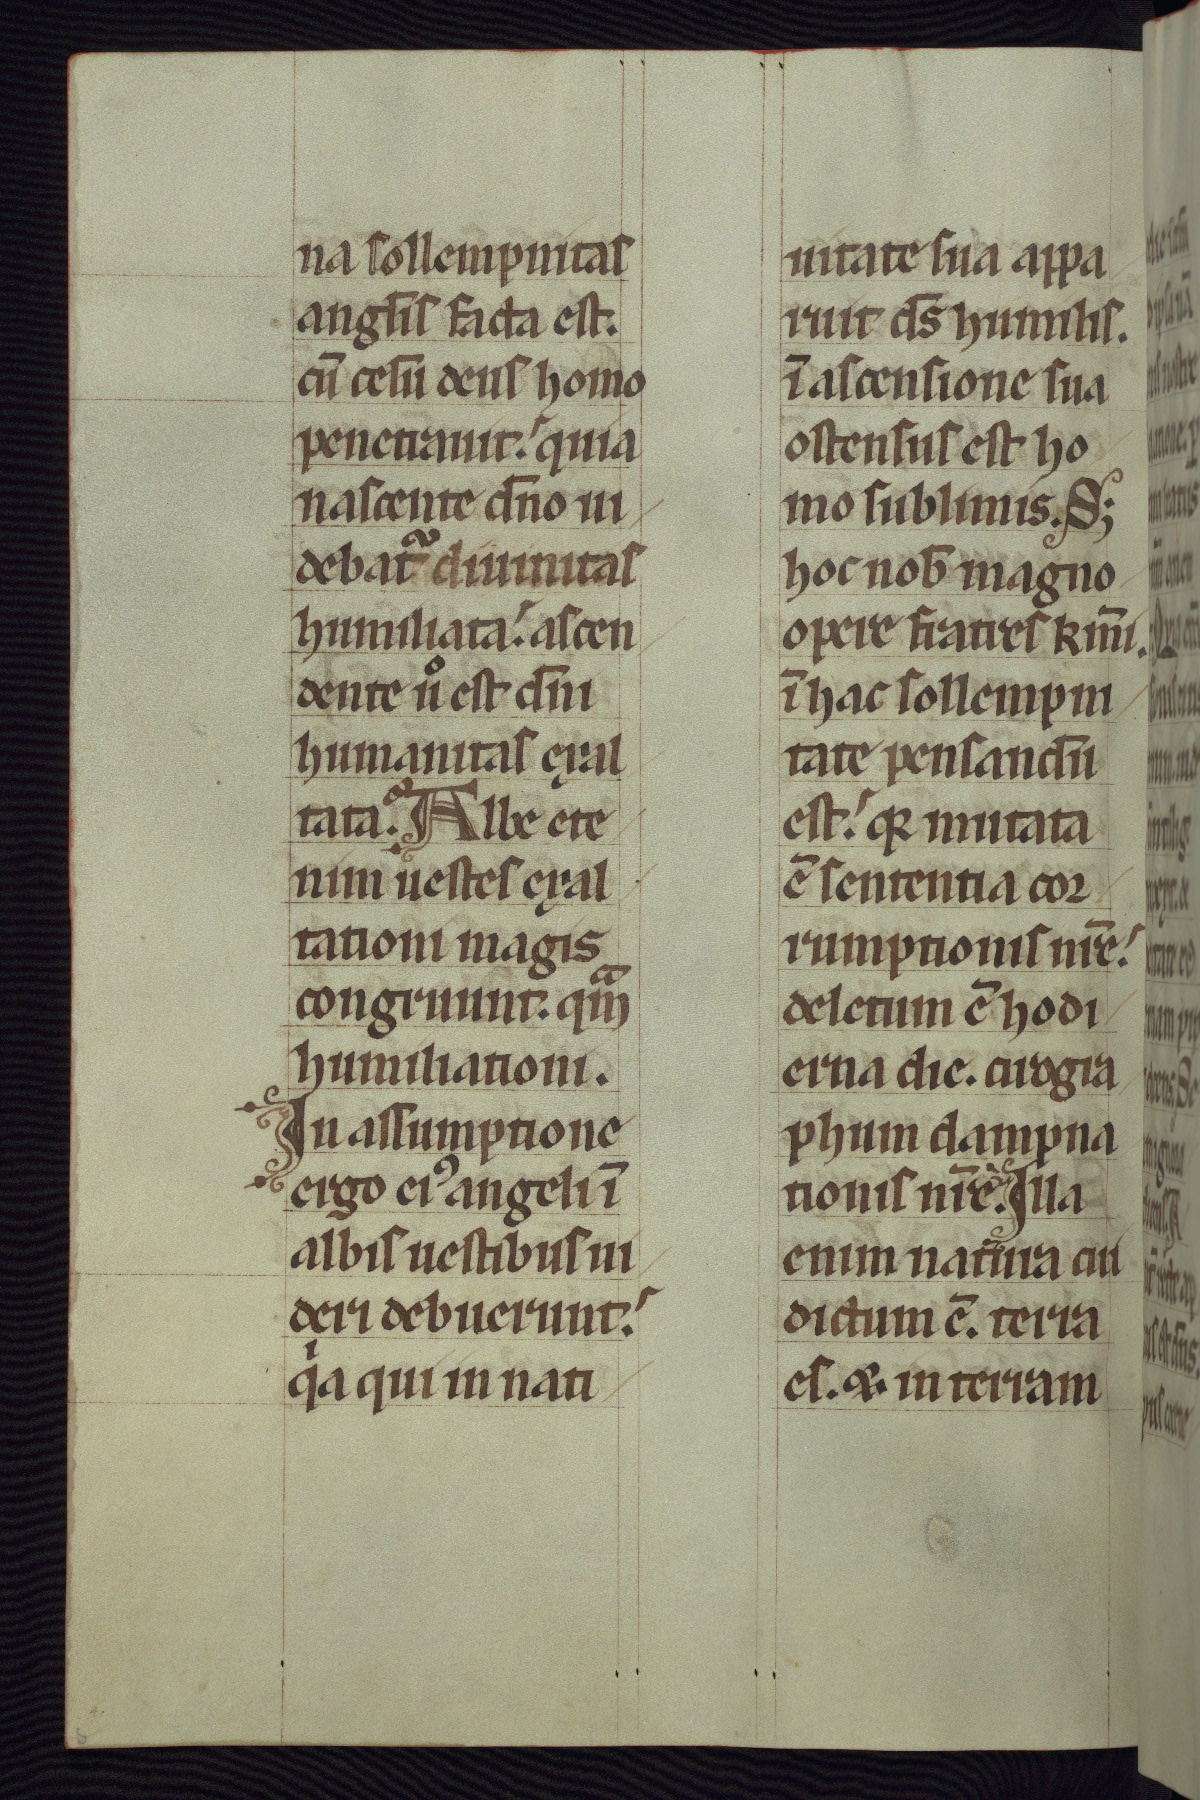 na sollempnitas
angl̄is facta est.
cū celū deus homo
penetrauit. quia
nascente dn̄o ui
debat᷑ diuinitas
humiliata. ascen
dente uͦ est dn̄i
humanitas exal
tata. Albe ete
nim uestes exal
tationi magis
congruunt. qm̄
humiliationi.
In assumptione
ergo eiꝰ angeli ī
albis uestibus ui
deri debuerunt.
qͥa qui in nati
uitate sua appa
ruit ds̄ humilis.
ī ascensione sua
ostensus est ho
mo sublimis. S;
hoc nob̄ magno
opere fratres km̄i.
ī hac sollempni
tate pensandū
est. qꝛ mutata
ē sententia cor
rumptionis nr̄e.
deletum ē hodi
erna die. cirogra
phum dampna
tionis nr̄e. Illa
enim natura cui
dictum ē. terra
es. & in terram